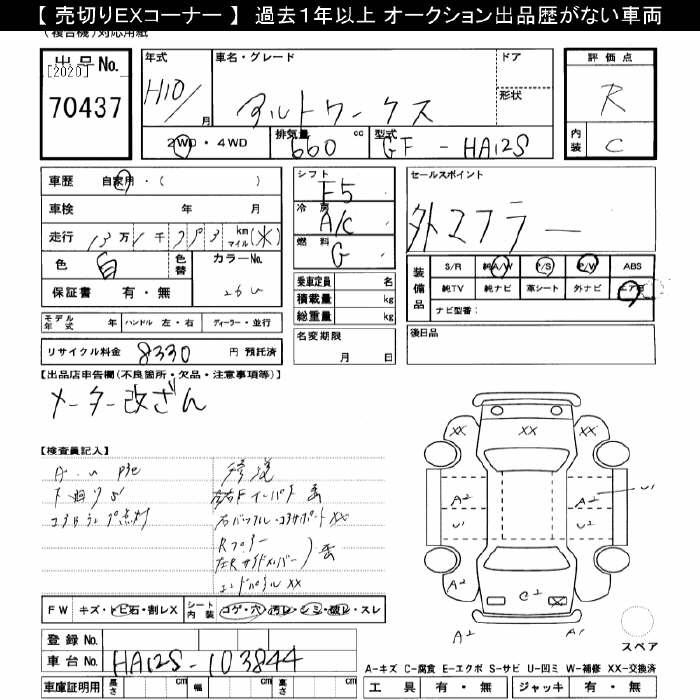 【 売切りEXコーナー 】 過去1年以上 オークション出品歴がない車両
(複合機)対応用紙
出品No.
[2020]
70437
年式
H10/
月
車名・グレード
アルトワークス
ドア
形状
2WD・4WD
排気量
660
cc
型式
GF - HA12S
評価点
R
内装
C
車歴 自家用・( )
車検 年 月
走行 13万1千393 km マイル (*)
色 白 色替 カラーNo. 26U
保証書 有・無
モデル年式 年 ハンドル 左・右 ディーラー・並行
リサイクル料金 8330 円 預託済
シフト
F5
冷房
A/C
燃料
G
乗車定員 名
積載量 kg
総重量 kg
名変期限
月 日
セールスポイント
外マフラー
装備品
S/R 純A/W P/S P/W ABS
純TV 純ナビ 革シート 外ナビ エアB
ナビ型番:
後日品
【出品店申告欄(不良箇所・欠品・注意事項等)】
メーター改ざん
【検査員記入】
修復
右バッフル・コアサポートXX
エンドパネルXX
FW キズ・トビ石・割レX シート内装 コゲ・穴・汚レ・シミ・破レ・スレ
登録No.
車台No. HA12S-103844
車庫証明用 長さ cm 幅 cm 高さ cm
XX XX XX
A2 A2 U1
U1 U2
A2 C2 A2
A2 A1
スペア
A-キズ C-腐食 E-エクボ S-サビ U-凹ミ W-補修 XX-交換済
工具 有・無 ジャッキ 有・無